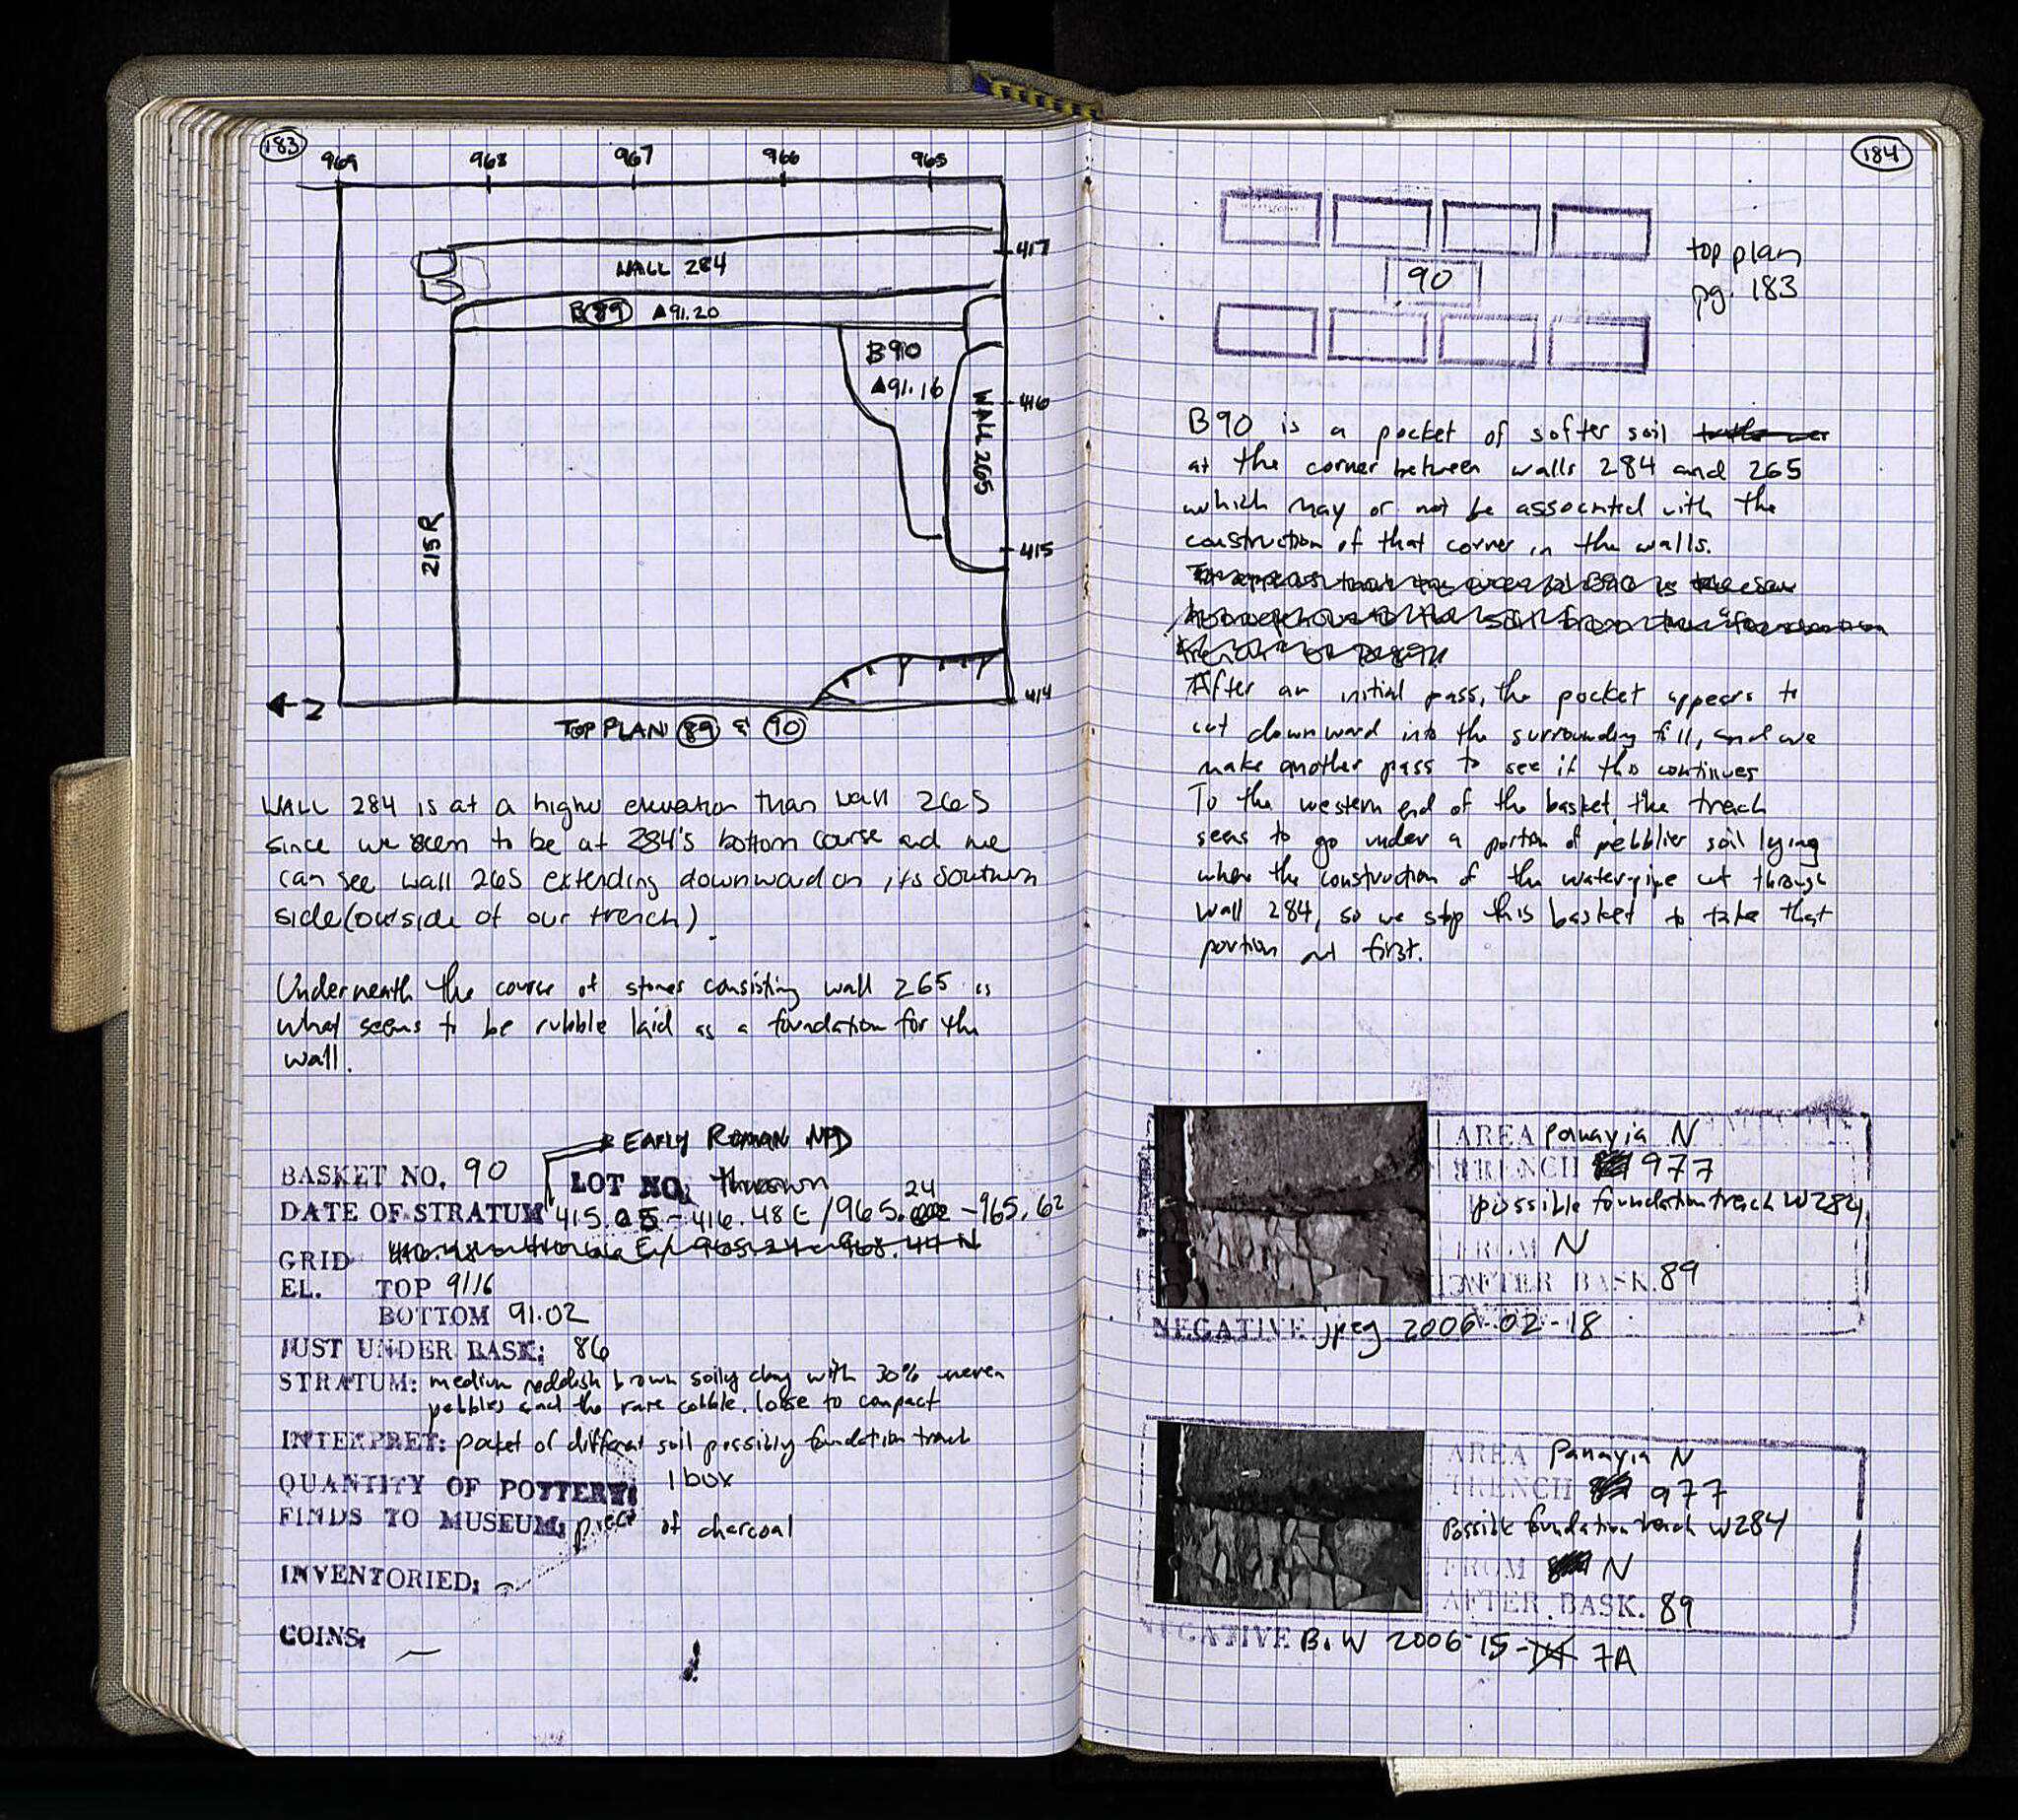 183
969 968 967 966 965
417
WALL 284
B 89 ▲91.20
B90
▲91.16
416
WALL 265
215R
415
414
N
TOP PLAN 89 & 90
WALL 284 is at a higher elevation than wall 265
since we seem to be at 284's bottom course and we
can see wall 265 extending downward on its southern
side (outside of our trench).
Underneath the course of stones consisting wall 265 is
what seems to be rubble laid as a foundation for the
wall.
EARLY ROMAN NPD
BASKET NO. 90 LOT NO. thrown
DATE OF STRATUM 415.05 - 416.48 E / 965.24 - 965.62
GRID
EL. TOP 91.16
BOTTOM 91.02
JUST UNDER BASK: 86
STRATUM: medium reddish brown soily clay with 30% uneven
pebbles and the rare cobble. loose to compact
INTERPRET: pocket of different soil possibly foundation trench
QUANTITY OF POTTERY: 1 box
FINDS TO MUSEUM: piece of charcoal
INVENTORIED:
COINS: —
184
90
top plan
pg. 183
B90 is a pocket of softer soil
at the corner between walls 284 and 265
which may or not be associated with the
construction of that corner in the walls.
After an initial pass, the pocket appears to
cut downward into the surrounding fill, and we
make another pass to see if this continues
To the western end of the basket the trench
seems to go under a portion of pebblier soil lying
where the construction of the waterpipe cut through
wall 284, so we stop this basket to take that
portion out first.
AREA Panayia N
TRENCH 977
possible foundation trench W284
FROM N
AFTER BASK. 89
NEGATIVE jpeg 2006-02-18
AREA Panayia N
TRENCH 977
Possible foundation trench W284
FROM N
AFTER BASK. 89
NEGATIVE B.W 2006-15- 7A